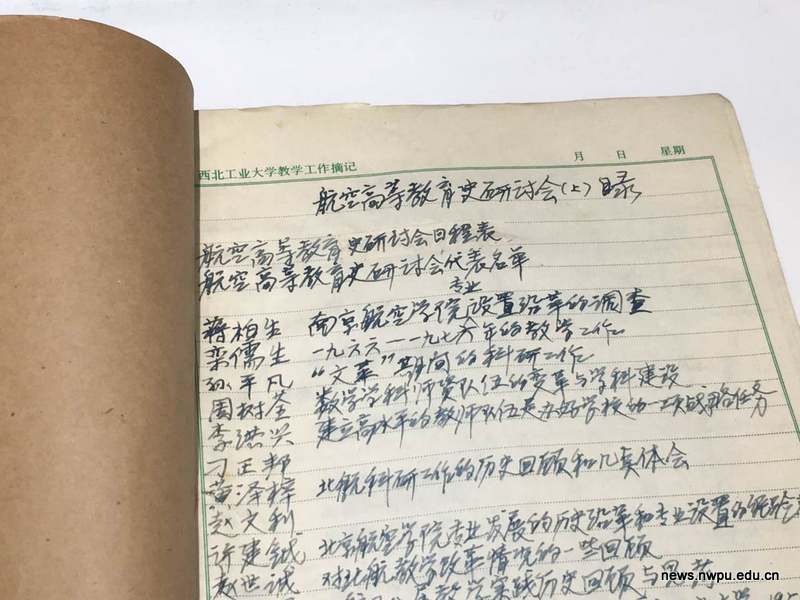 西北工业大学教学工作摘记
月 日 星期
航空高等教育史研讨会(上)目录
航空高等教育史研讨会日程表
航空高等教育史研讨会代表名单
专业
蒋柏生 南京航空学院设置沿革的调查
栾儒生 一九六六—一九七六年的教学工作
孙平凡 “文革”期间的科研工作
周树荃 数学学科师资队伍的变革与学科建设
李洪兴 建立高水平的教师队伍是办好学校的一项战略任务
刁正邦
黄泽梓 北航科研工作的历史回顾和几点体会
赵文利
许建钺 北京航空学院专业发展的历史沿革和专业设置的经验
赵世诚 对北航教学改革情况的一些回顾
教学实践历史回顾与思考
news.nwpu.edu.cn